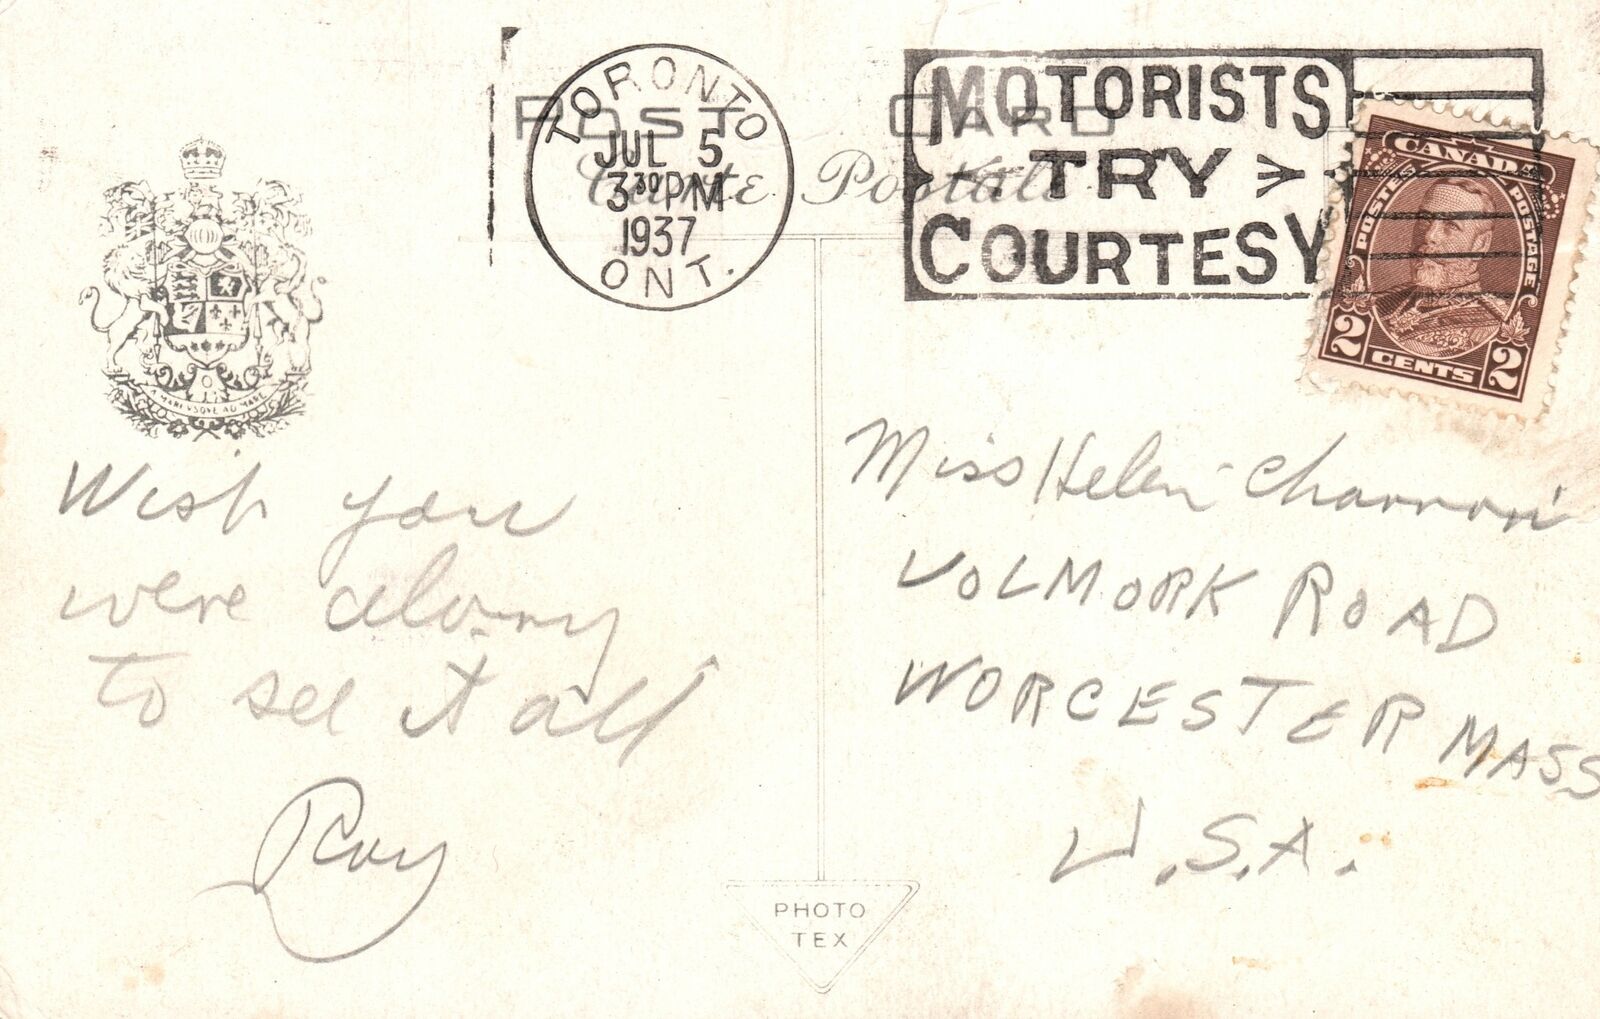 POST CARD
Carte Postale
TORONTO
JUL 5
3 30 PM
1937
ONT.
MOTORISTS
TRY
COURTESY
CANADA
POSTES POSTAGE
2 CENTS 2
A MARI VSQVE AD MARE
Wish you
were along
to see it all
Roy
Miss Helen
VOLMORK ROAD
WORCESTER MASS
U.S.A.
PHOTO
TEX